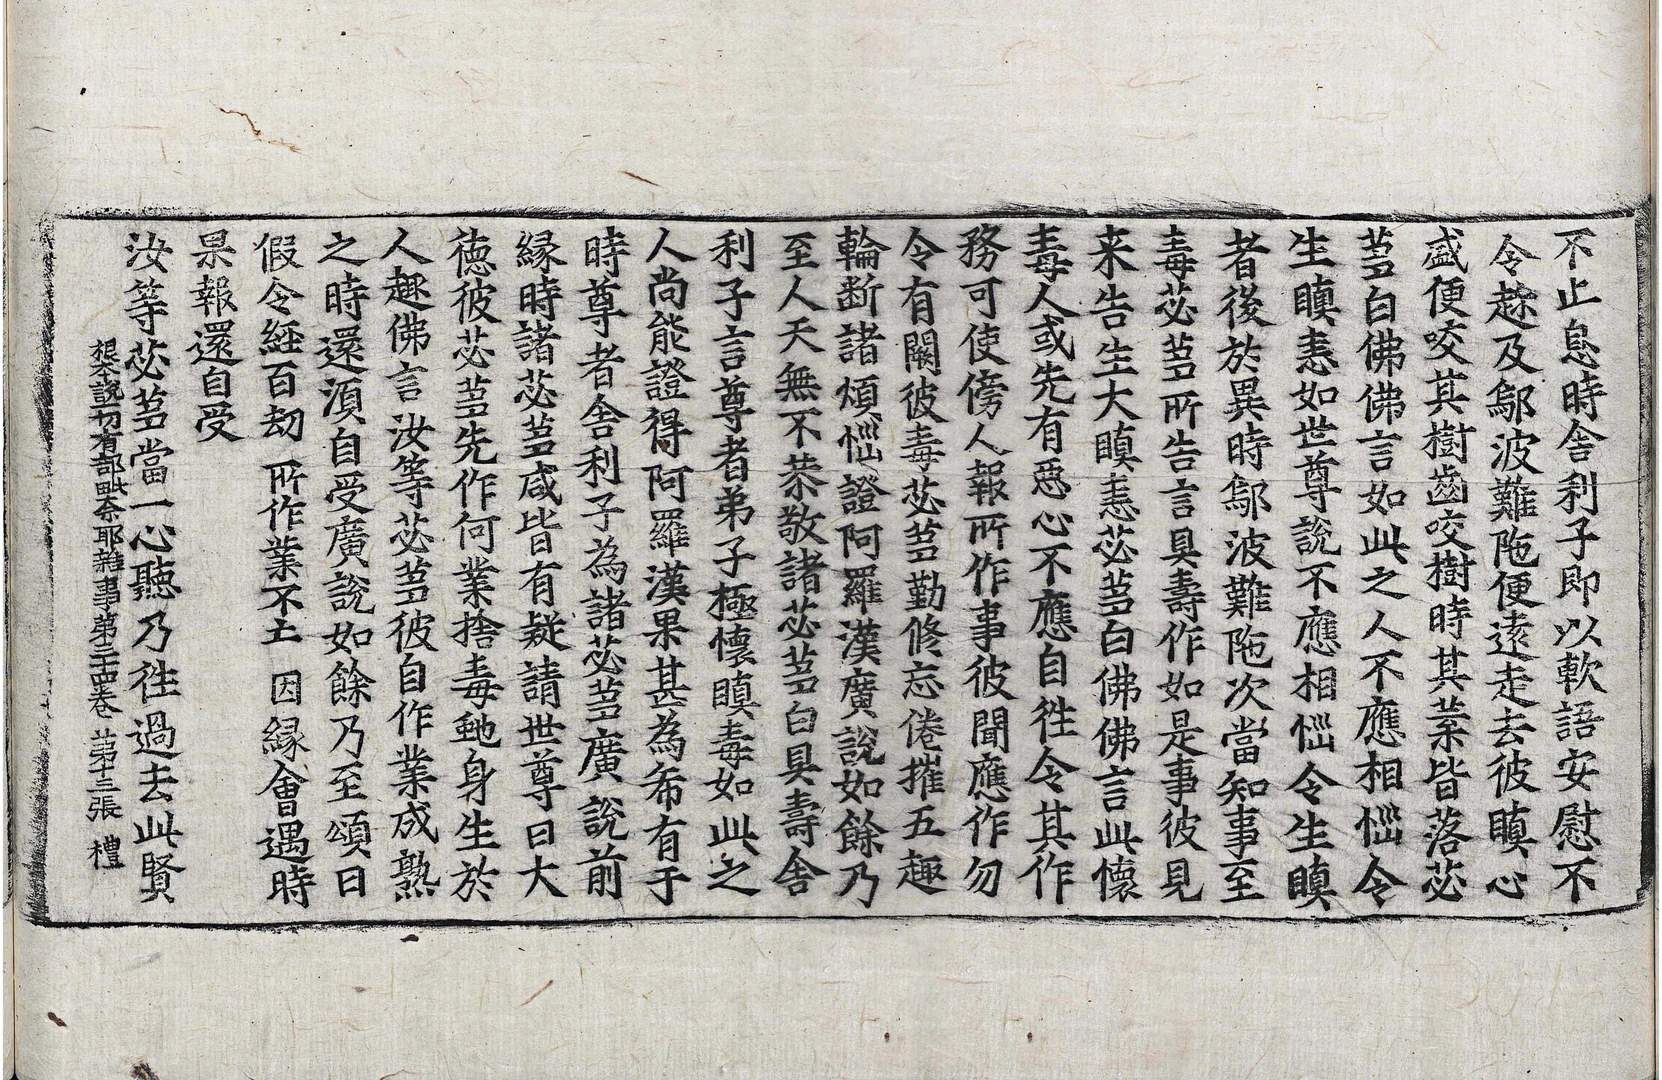 不止息時舍利子即以軟語安慰不
令趂及鄔波難陁便遠走去彼瞋心
盛便咬其樹齒咬樹時其葉皆落苾
蒭白佛佛言如此之人不應相惱令
生瞋恚如世尊說不應相惱令生瞋
者後於異時鄔波難陁次當知事至
毒苾蒭所告言具壽作如是事彼見
来告生大瞋恚苾蒭白佛佛言此懷
毒人或先有惡心不應自往令其作
務可使傍人報所作事彼聞應作勿
令有闕彼毒苾蒭勤修忘倦摧五趣
輪斷諸煩惱證阿羅漢廣說如餘乃
至人天無不恭敬諸苾蒭白具壽舍
利子言尊者弟子極懷瞋毒如此之
人尚能證得阿羅漢果甚為希有于
時尊者舍利子為諸苾蒭廣說前
縁時諸苾蒭咸皆有疑請世尊曰大
德彼苾蒭先作何業捨毒虵身生於
人趣佛言汝等苾蒭彼自作業成熟
之時還湏自受廣說如餘乃至頌曰
假令經百劫 所作業不亡 因縁會遇時
果報還自受
汝等苾蒭當一心聽乃往過去此賢
根本說一切有部毗奈耶雜事第二十四卷 第十三張 禮